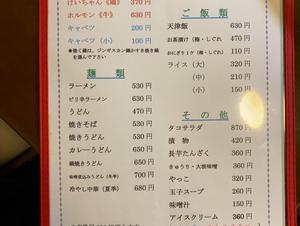 けいちゃん《鶏》 370円
ホルモン《牛》 630円
キャベツ 200円
キャベツ（小） 100円
麺類
ラーメン 530円
ピリ辛ラーメン 630円
うどん 470円
焼きそば 530円
焼きうどん 530円
カレーうどん 650円
鍋焼きうどん 650円
味噌煮込みうどん（冬季） 700円
冷やし中華（夏季） 680円
ご飯類
天津飯 630円
お茶漬け（梅・しぐれ） 470円
おにぎり1ケ（梅・しぐれ） 110円
ライス（大） 320円
（中） 210円
（小） 150円
その他
タコサラダ 870円
漬物 420円
長芋たんざく 360円
きゅうり・大根味噌 360円
やっこ 320円
玉子スープ 260円
味噌汁 150円
アイスクリーム 360円